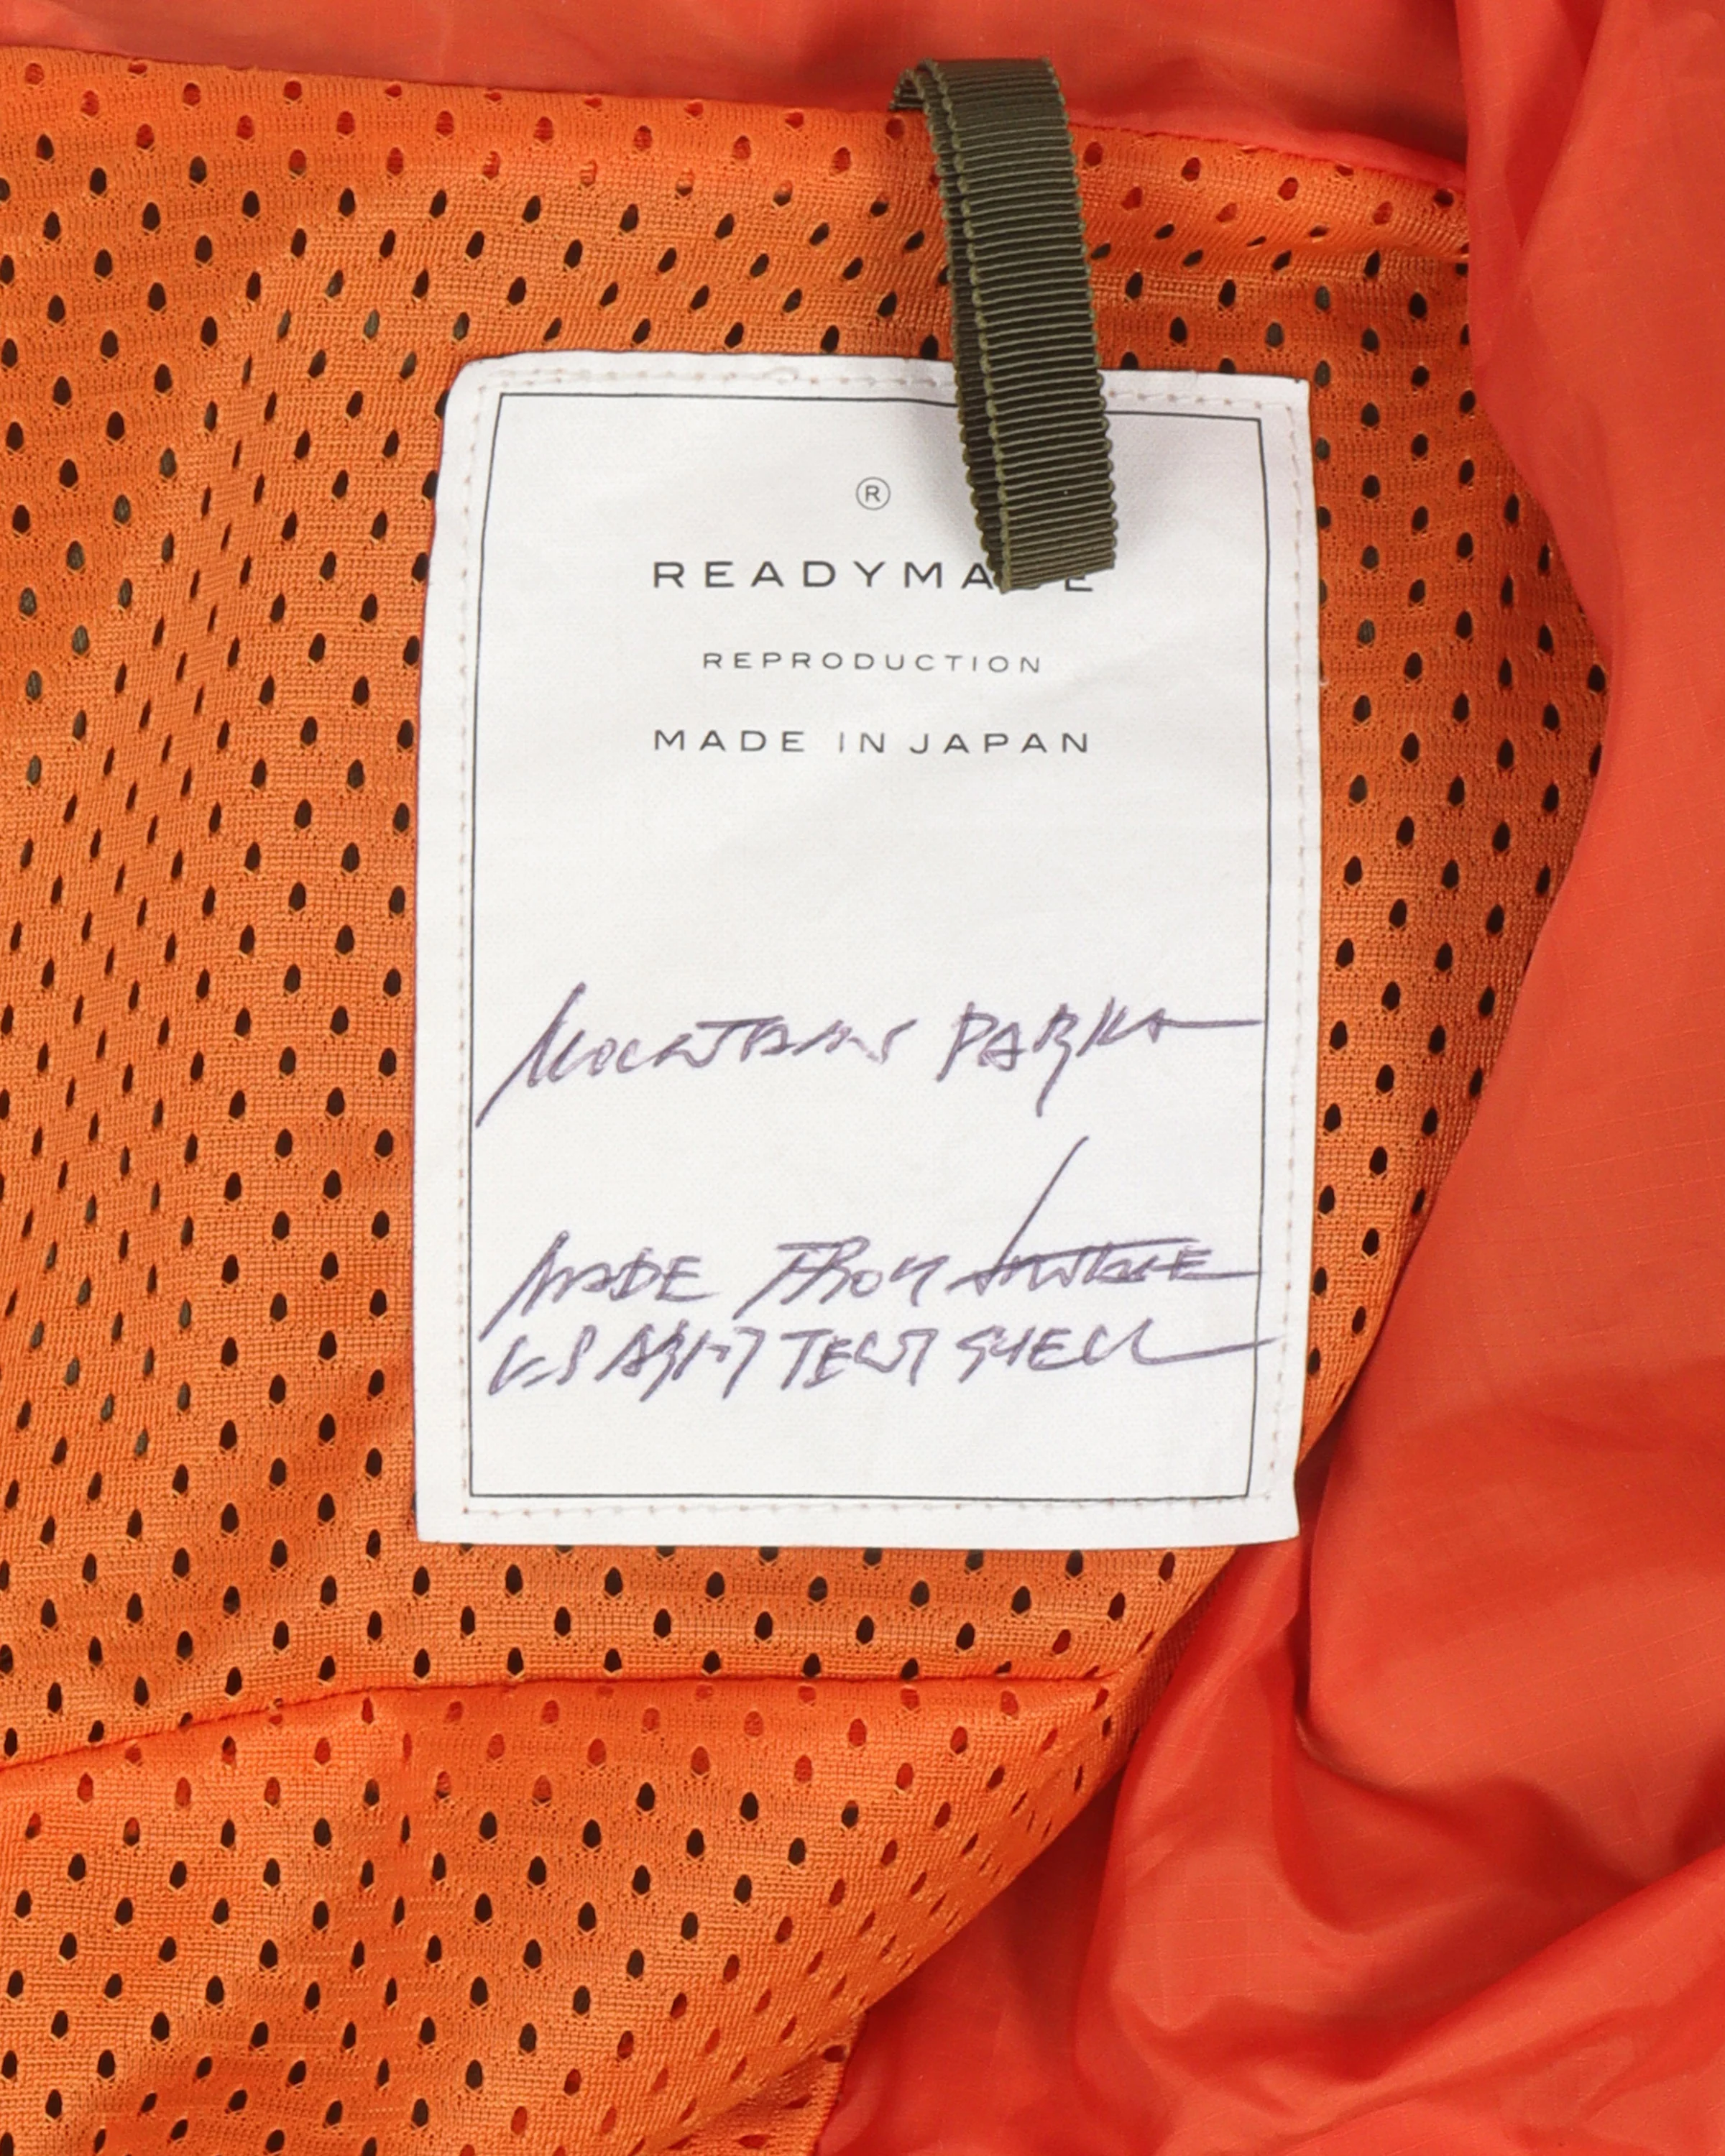 ®
READYMADE
REPRODUCTION
MADE IN JAPAN
MOUNTAIN PARKA
MADE FROM VINTAGE
US ARMY TENT SHELL